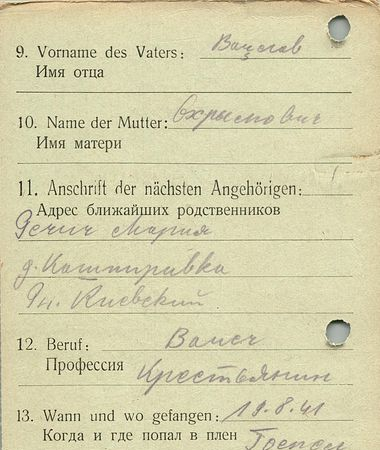 9. Vorname des Vaters: Вацлав
Имя отца
10. Name der Mutter: Охримович
Имя матери
11. Anschrift der nächsten Angehörigen:
Адрес ближайших родственников
Мария
д.
Киевский
12. Beruf:
Профессия Крестьянин
13. Wann und wo gefangen: 10.8.41
Когда и где попал в плен Гомель